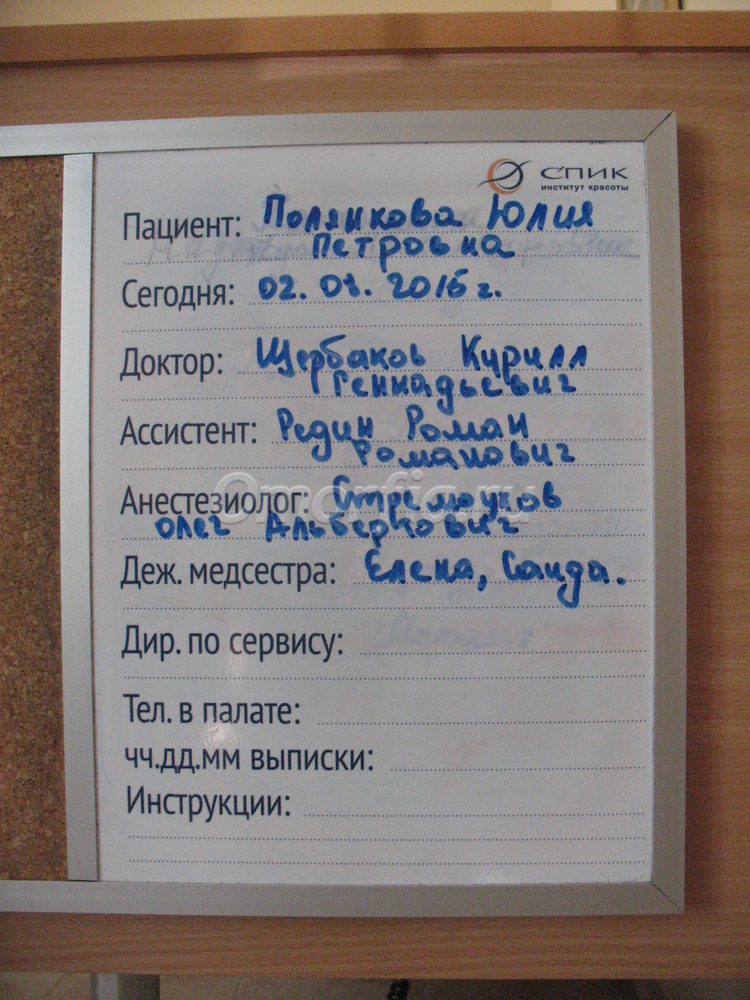 СПИК
институт красоты
Пациент: Полянкова Юлия
Петровна
Сегодня: 02.08.2015 г.
Доктор: Щербаков Кирилл
Геннадьевич
Ассистент: Редин Роман
Романович
Анестезиолог: Стремоухов
Олег Альберкович
Деж. медсестра: Елена, Саида.
Дир. по сервису:
Тел. в палате:
чч.дд.мм выписки:
Инструкции:
Omorfia.ru